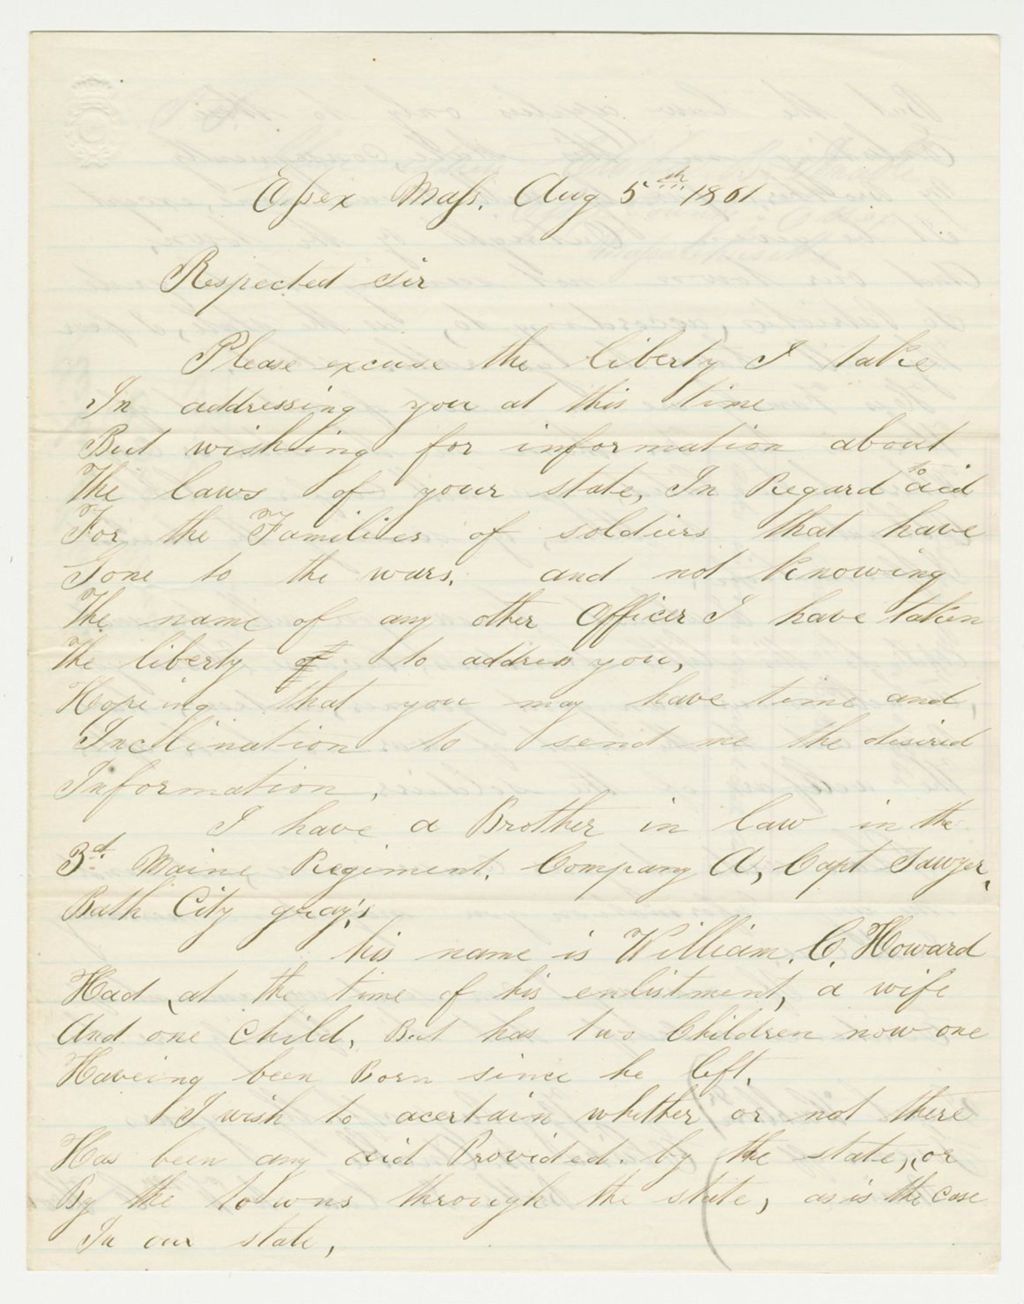 Essex Mass. Aug 5th 1861
Respected Sir
Please excuse the liberty I take
In addressing you at this time
But wishing for information about
The laws of your state, In Regard to aid
For the Families of soldiers that have
Gone to the wars. and not knowing
The name of any other officer I have taken
The liberty of to address you,
Hopeing that you may have time and,
Inclination to send me the desired
Information,
I have a Brother in law in the
3d Maine Regiment. Company A, Capt Sawyer,
Bath City gray's
his name is William. C. Howard
Had, at the time of his enlistment, a wife
And one Child, But has two Children now one
Haveing been Born since he left,
I wish to acertain whether or not there
Has been any aid Provided. by the state, or
By the towns through the state, as is the case
In our state,